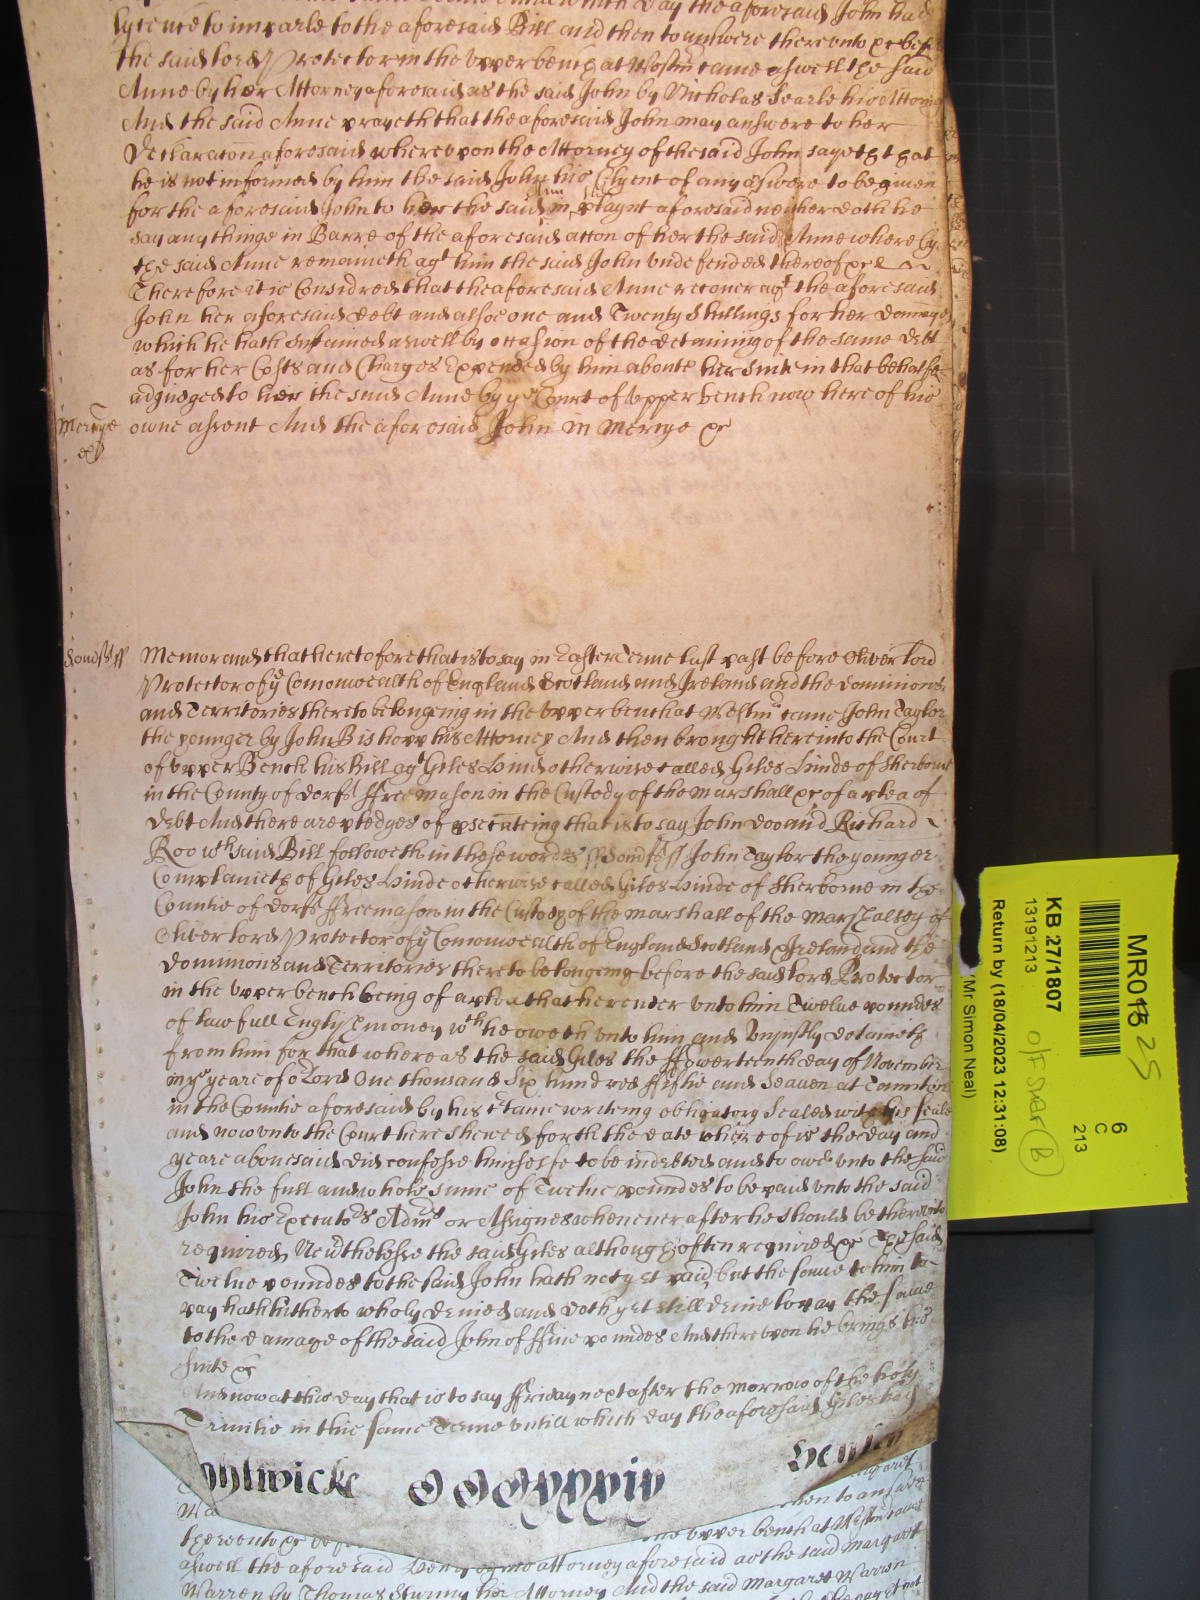 day the aforesaid John had
lycence to imparle to the aforesaid Bill and then to answere thereunto &c before
the said Lord Protector in the upper bench at Westm came aswell the said
Anne by her Attorney aforesaid as the said John by Nicholas Searle his Attorney
And the said Anne prayeth that the aforesaid John may answere to her
Declaracon aforesaid whereupon the Attorney of the said John sayeth that
he is not informed by him the said John his Clyent of any answere to be given
for the aforesaid John to her the said in playnt aforesaid neither doth he
say any thinge in Barre of the aforesaid accon of her the said Anne whereby
the said Anne remaineth agt him the said John undefended thereof &c
Therefore it is Considred that the aforesaid Anne recover agt the aforesaid
John her aforesaid debt and alsoe one and Twenty Shillings for her Damages
which he hath Susteined aswell by occasion of the detaining of the same debt
as for her Costs and Charges Expended by him about her suite in that behalfe
adjudged to her the said Anne by ye Court of Upper bench now here of his
Mercye owne assent And the aforesaid John in Mercye &c
&c
Memorand that heretofore that is to say in Easter Terme last past before Oliver Lord
Protector of ye Comonwealth of England Scotland and Ireland and the dominions
and Territories thereto belongeing in the Upper bench at Westm came John Taylor
the younger by John Bishopp his Attorney And then brought here into the Court
of Upper Bench his Bill agt Giles Hinde otherwise called Giles Hinde of Sherborne
in the County of Dorst ffreemason in the Custody of the Marshall &c of a plea of
debt And there are pledges of prosecuteing that is to say John Doo and Richard
Roo wch said Bill followeth in these wordes ss John Taylor the younger
Complaineth of Giles Hinde otherwise called Giles Hinde of Sherborne in the
Countie of Dorst ffreemason in the Custody of the Marshall of the Marshalsey of
Oliver Lord Protector of ye Comonwealth of England Scotland & Ireland and the
Dominions and Territories thereto belongeing before the said Lord Protector
in the upper bench being of a plea that he render unto him Twelve poundes
of lawfull English money wch he oweth unto him and unjustly detaineth
from him for that whereas the said Giles the ffowerteenth day of November
in ye yeare of or Lord One thousand Six hundred ffiftie and Seaven at Taunton
in the Countie aforesaid by his certaine writeing obligatory Sealed with his seale
and now unto the Court here shewed forth the date whereof is the day and
yeare abovesaid did confesse himselfe to be indebted and to owe unto the said
John the full and whole sume of Twelve poundes to be paid unto the said
John his Executors Admrs or Assignes whenever after he should be thereunto
required Neverthelesse the said Giles although often required &c The said
Twelve poundes to the said John hath not yet paid but the same to him to
pay hath hitherto wholy denied and doth yet still denie to pay the same
to the damage of the said John of ffive poundes And thereupon he brings his
suite &c
And now at this day that is to say ffriday next after the Morrow of the holy
Trinitie in this same Terme untill which day the aforesaid Giles had
then to answere
thereunto &c the upper bench at Westm came
aswell the aforesaid Henry by his attorney aforesaid as the said Margaret
Warren by Thomas her Attorney And the said Margaret Warren
MR015 25
KB 27/1807
13191213
Return by (18/04/2023 12:31:08)
(Mr Simon Neal)
6
C
213
B